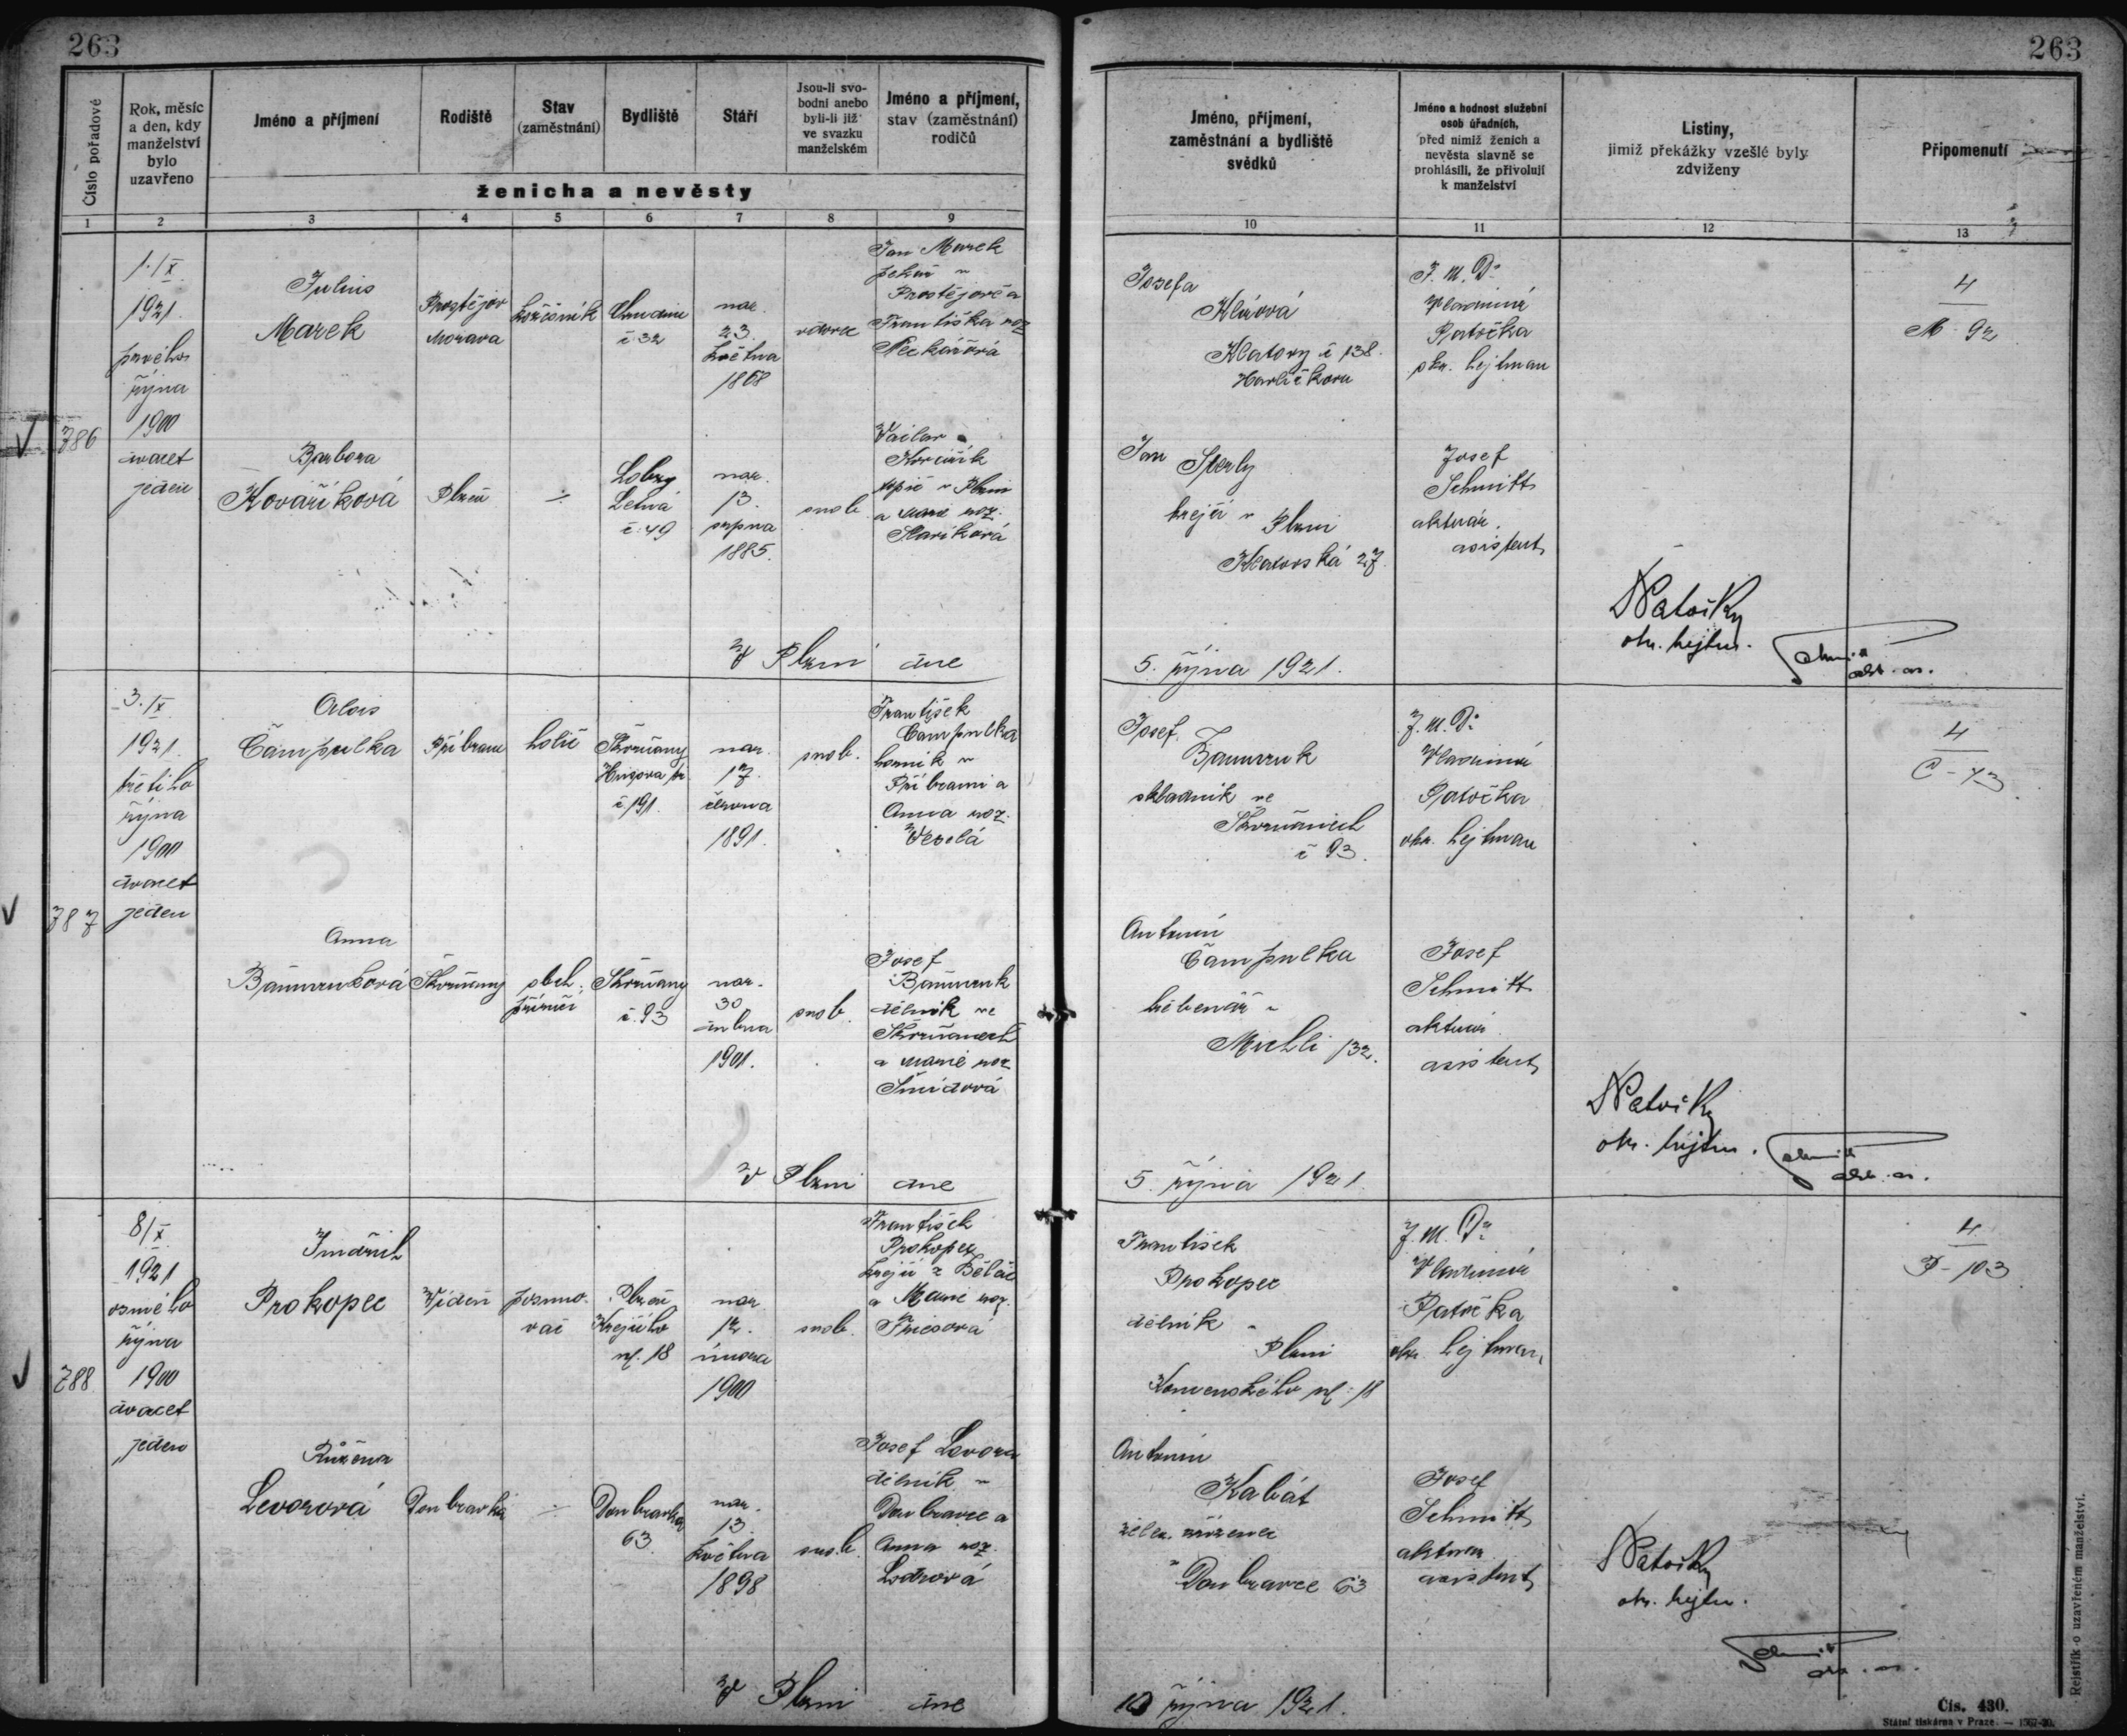 263
263
Číslo pořadové
Rok, měsíc
a den, kdy
manželství
bylo
uzavřeno
Jméno a příjmení
Rodiště
Stav
(zaměstnání)
Bydliště
Stáří
Jsou-li svo-
bodni anebo
byli-li již
ve svazku
manželském
Jméno a příjmení,
stav (zaměstnání)
rodičů
ženicha a nevěsty
Jméno, příjmení,
zaměstnání a bydliště
svědků
Jméno a hodnost služební
osob úředních,
před nimiž ženich a
nevěsta slavně se
prohlásili, že přivolují
k manželství
Listiny,
jimiž překážky vzešlé byly
zdviženy
Připomenutí
1
2
3
4
5
6
7
8
9
10
11
12
13
786
1./X
1921
prvého
října
1900
dvacet
jeden
Julius
Marek
Prostějov
Morava
č 32
nar.
23.
května
1868
vdovec
Jan Marek
pekař v
Prostějově a
Františka roz
Josefa
Klatovy č 138.
J. U. Dr
Vladimír
Patočka
okr. hejtman
4
M - 92
Barbora
Kováříková
Plzeň
÷
Lobzy
Letná
č. 49
nar.
13.
srpna
1885.
svob.
Václav
topič v Plzni
a Marie roz.
Jan
krejčí v
Plzni
Klatovská 27.
Josef
Schmitt
aktuár.
asistent
V Plzni dne
5. října 1921.
okr. hejtm.
3./X
1921
třetího
října
1900
dvacet
jeden
787
Alois
Čampulka
Příbram
holič
Skvrňany
č 191.
nar.
17.
června
1891.
svob.
František
Čampulka
horník v
Příbrami a
Anna roz.
Veselá
Josef
skladník ve
Skvrňanech
č 93.
J. U. Dr
Vladimír
Patočka
okr. hejtman
4
Č - 73
Anna
Skvrňany
Skvrňany
č. 93
nar.
30
dubna
1901.
svob.
Josef
dělník ve
Skvrňanech
a Marie roz
Šmídová
Antonín
Čampulka
Michli 132.
Josef
Schmitt
aktuár.
asistent
V Plzni dne
5. října 1921.
okr. hejtm.
8/X
1921
osmého
října
1900
dvacet
jeden
788
Jindřich
Prokopec
Vídeň
posuno-
vač
Plzeň
ul. 18
nar.
12.
února
1900
svob.
František
Prokopec
a Marie roz.
František
Prokopec
dělník v
Plzni
Komenského ul. 18
J. U. Dr
Vladimír
Patočka
okr. hejtman
4
P - 103
Růžena
Levorová
Doubravka
÷
Doubravka
63
nar.
13.
května
1898
svob.
Josef Levora
dělník v
Doubravce a
Anna roz.
Antonín
Kabát
želez. zřízenec
v Doubravce 63
Josef
Schmitt
aktuar.
asistent
okr. hejtm.
V Plzni dne
10 října 1921.
Čís. 430.
Rejstřík o uzavřeném manželství.